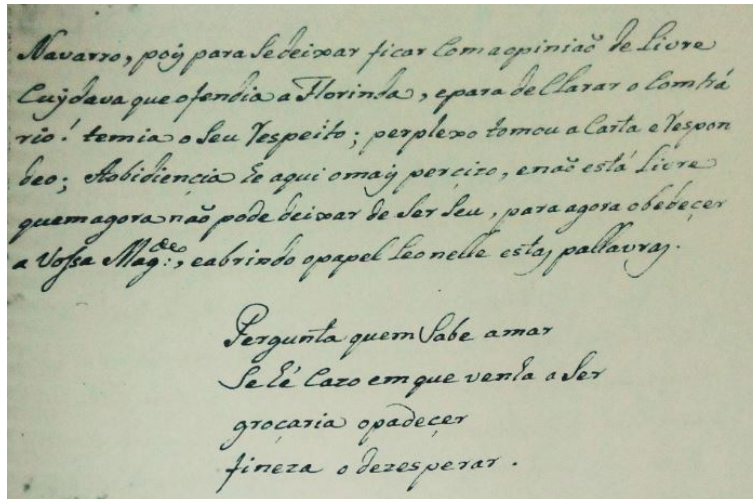 Navarro, poŷ para Se deixar ficar Com a opinião de Livre
Cuÿdava que ofendia a Florinda, epara de Clarar o Comtrá
rio! temia o Seu Respeito; perplexo tomou a Carta e Respon
deo; Aobidiencia he aqui omaÿ percizo, enaõ está Livre
quem agora não pode deixar de Ser Seu, para agora obedeçer
a Vossa Mag.de, e abrindo opapel Leo nelle estaz pallavraz.
Pergunta quem Sabe amar
Se hé Cazo em que venha a Ser
groçaria opadeçer
fineza o dezesperar.